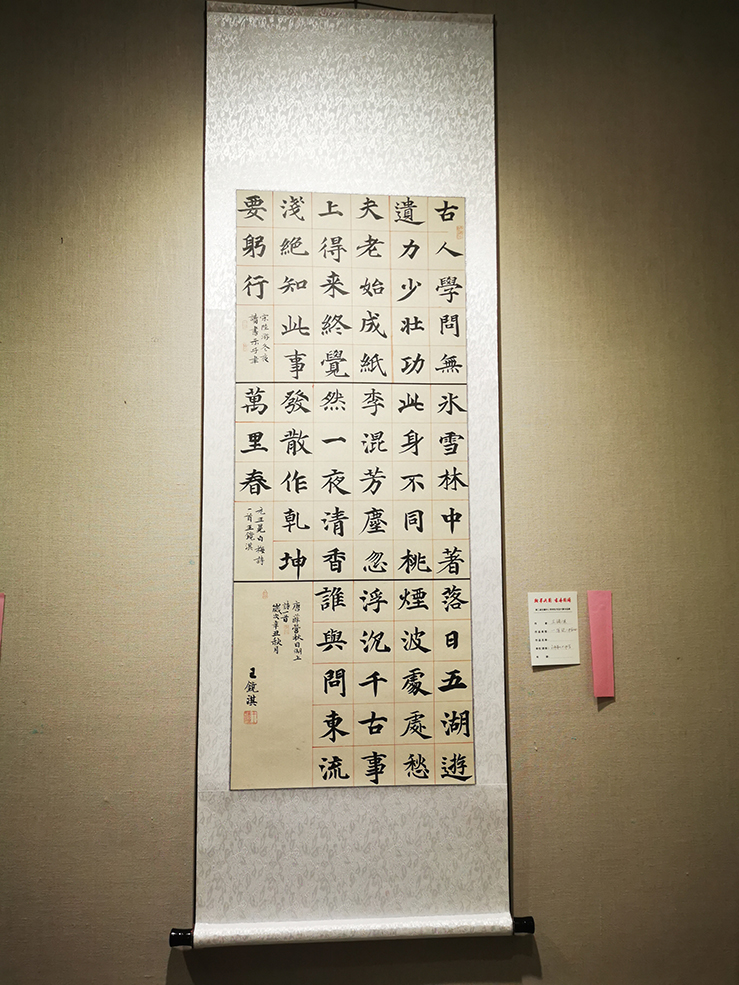 古人學問無
遺力少壯功
夫老始成紙
上得来終覺
淺絕知此事
要躬行
宋陸游冬夜
讀書示子聿
氷雪林中著
此身不同桃
李混芳塵忽
然一夜清香
發散作乾坤
萬里春
元王冕白梅詩
一首王鏡淇
落日五湖遊
煙波處處愁
浮沉千古事
誰與問東流
唐薛瑩秋日湖上
詩一首
歲次辛丑秋月
王鏡淇